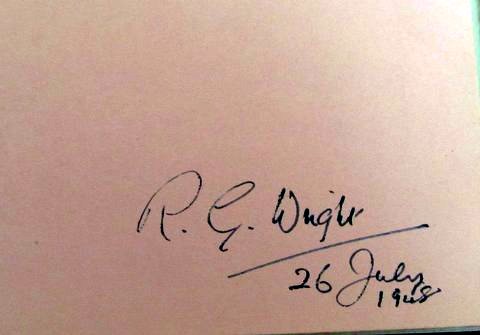 R. G. Wright
26 July
1948